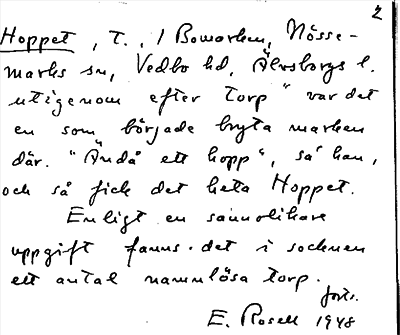 2
Hoppet, T., i Bowarken, Nösse-
marks sn, Vedbo hd, Älvsborgs l.
utigenom efter torp" var det
en som började bryta marken
där. "Ändå ett hopp", sa' han,
och så fick det heta Hoppet.
Enligt en sannolikare
uppgift fanns det i socknen
ett antal namnlösa torp.
forts.
E. Rosell 1948